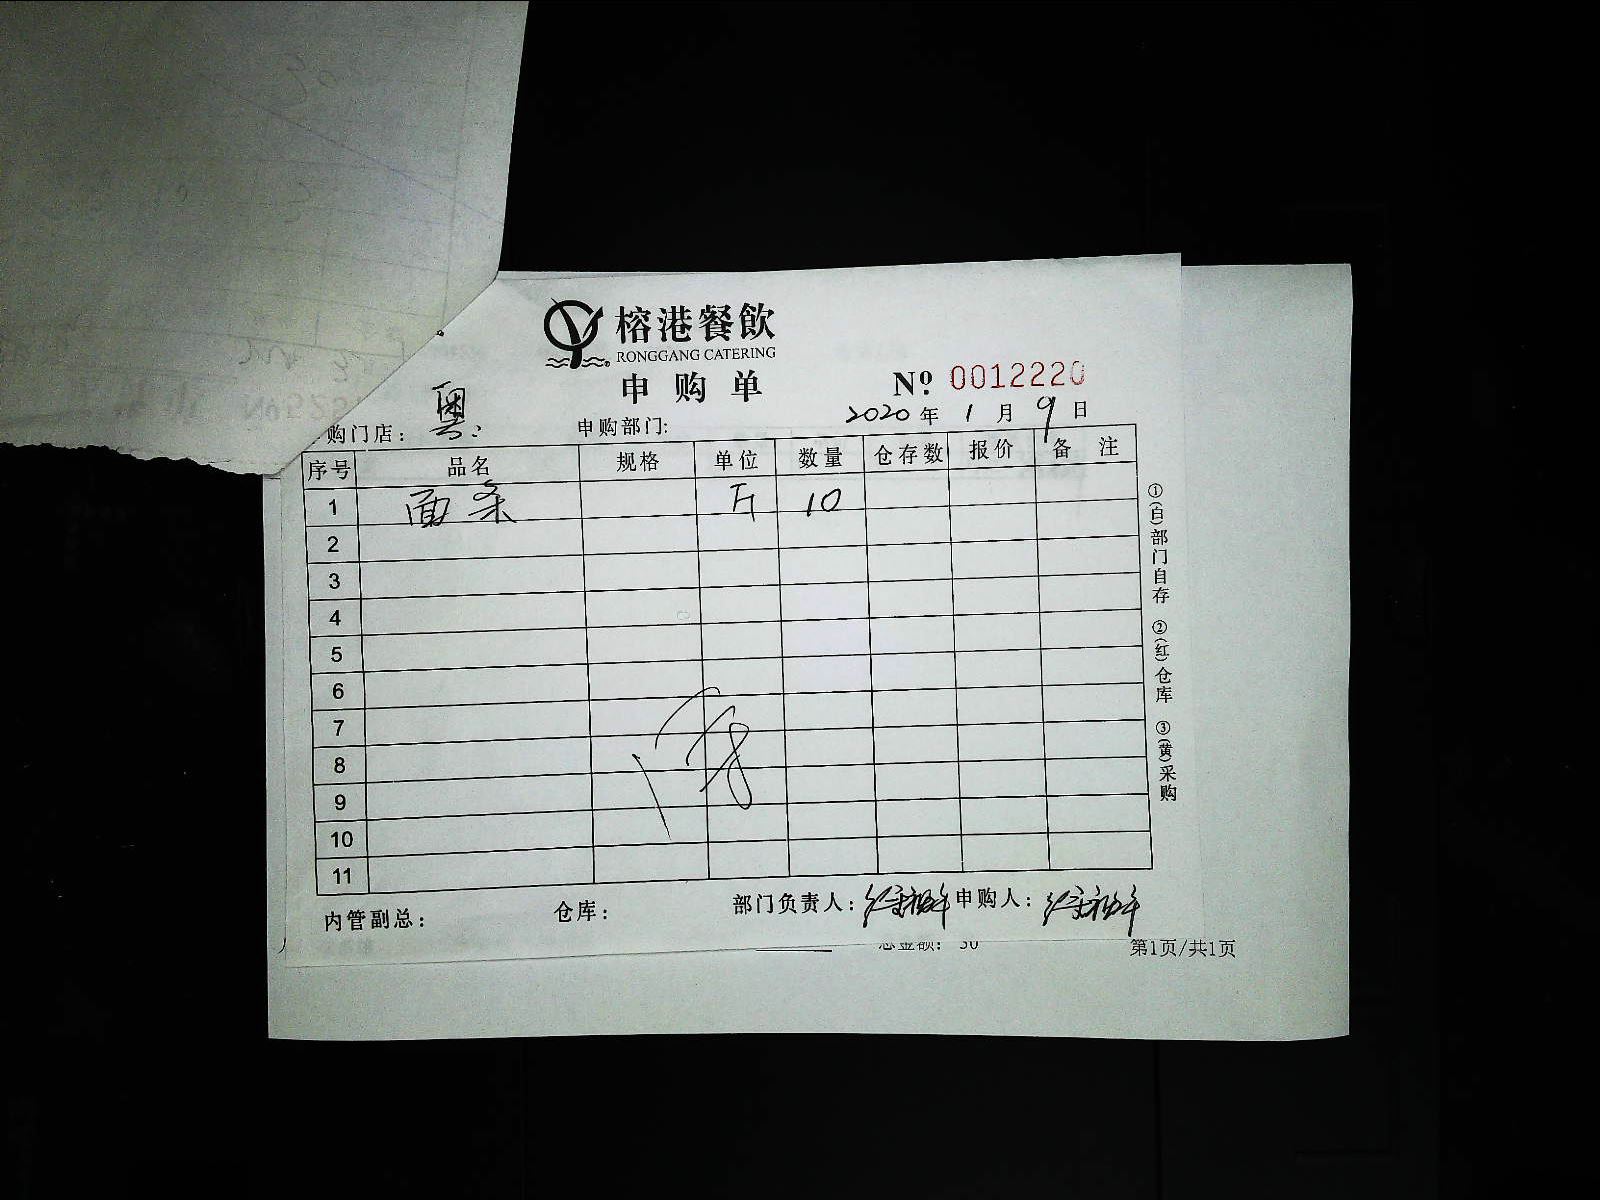 榕港餐飲
RONGGANG CATERING
申购单 Nº 0012220
2020年1月9日
购门店：粤 申购部门:
序号 品名 规格 单位 数量 仓存数 报价 备注
1 面条 斤 10
2
3
4
5
6
7
8
9
10
11
①(白)部门自存 ②(红)仓库 ③(黄)采购
内管副总： 仓库： 部门负责人： 申购人：
总金额： 30 第1页/共1页